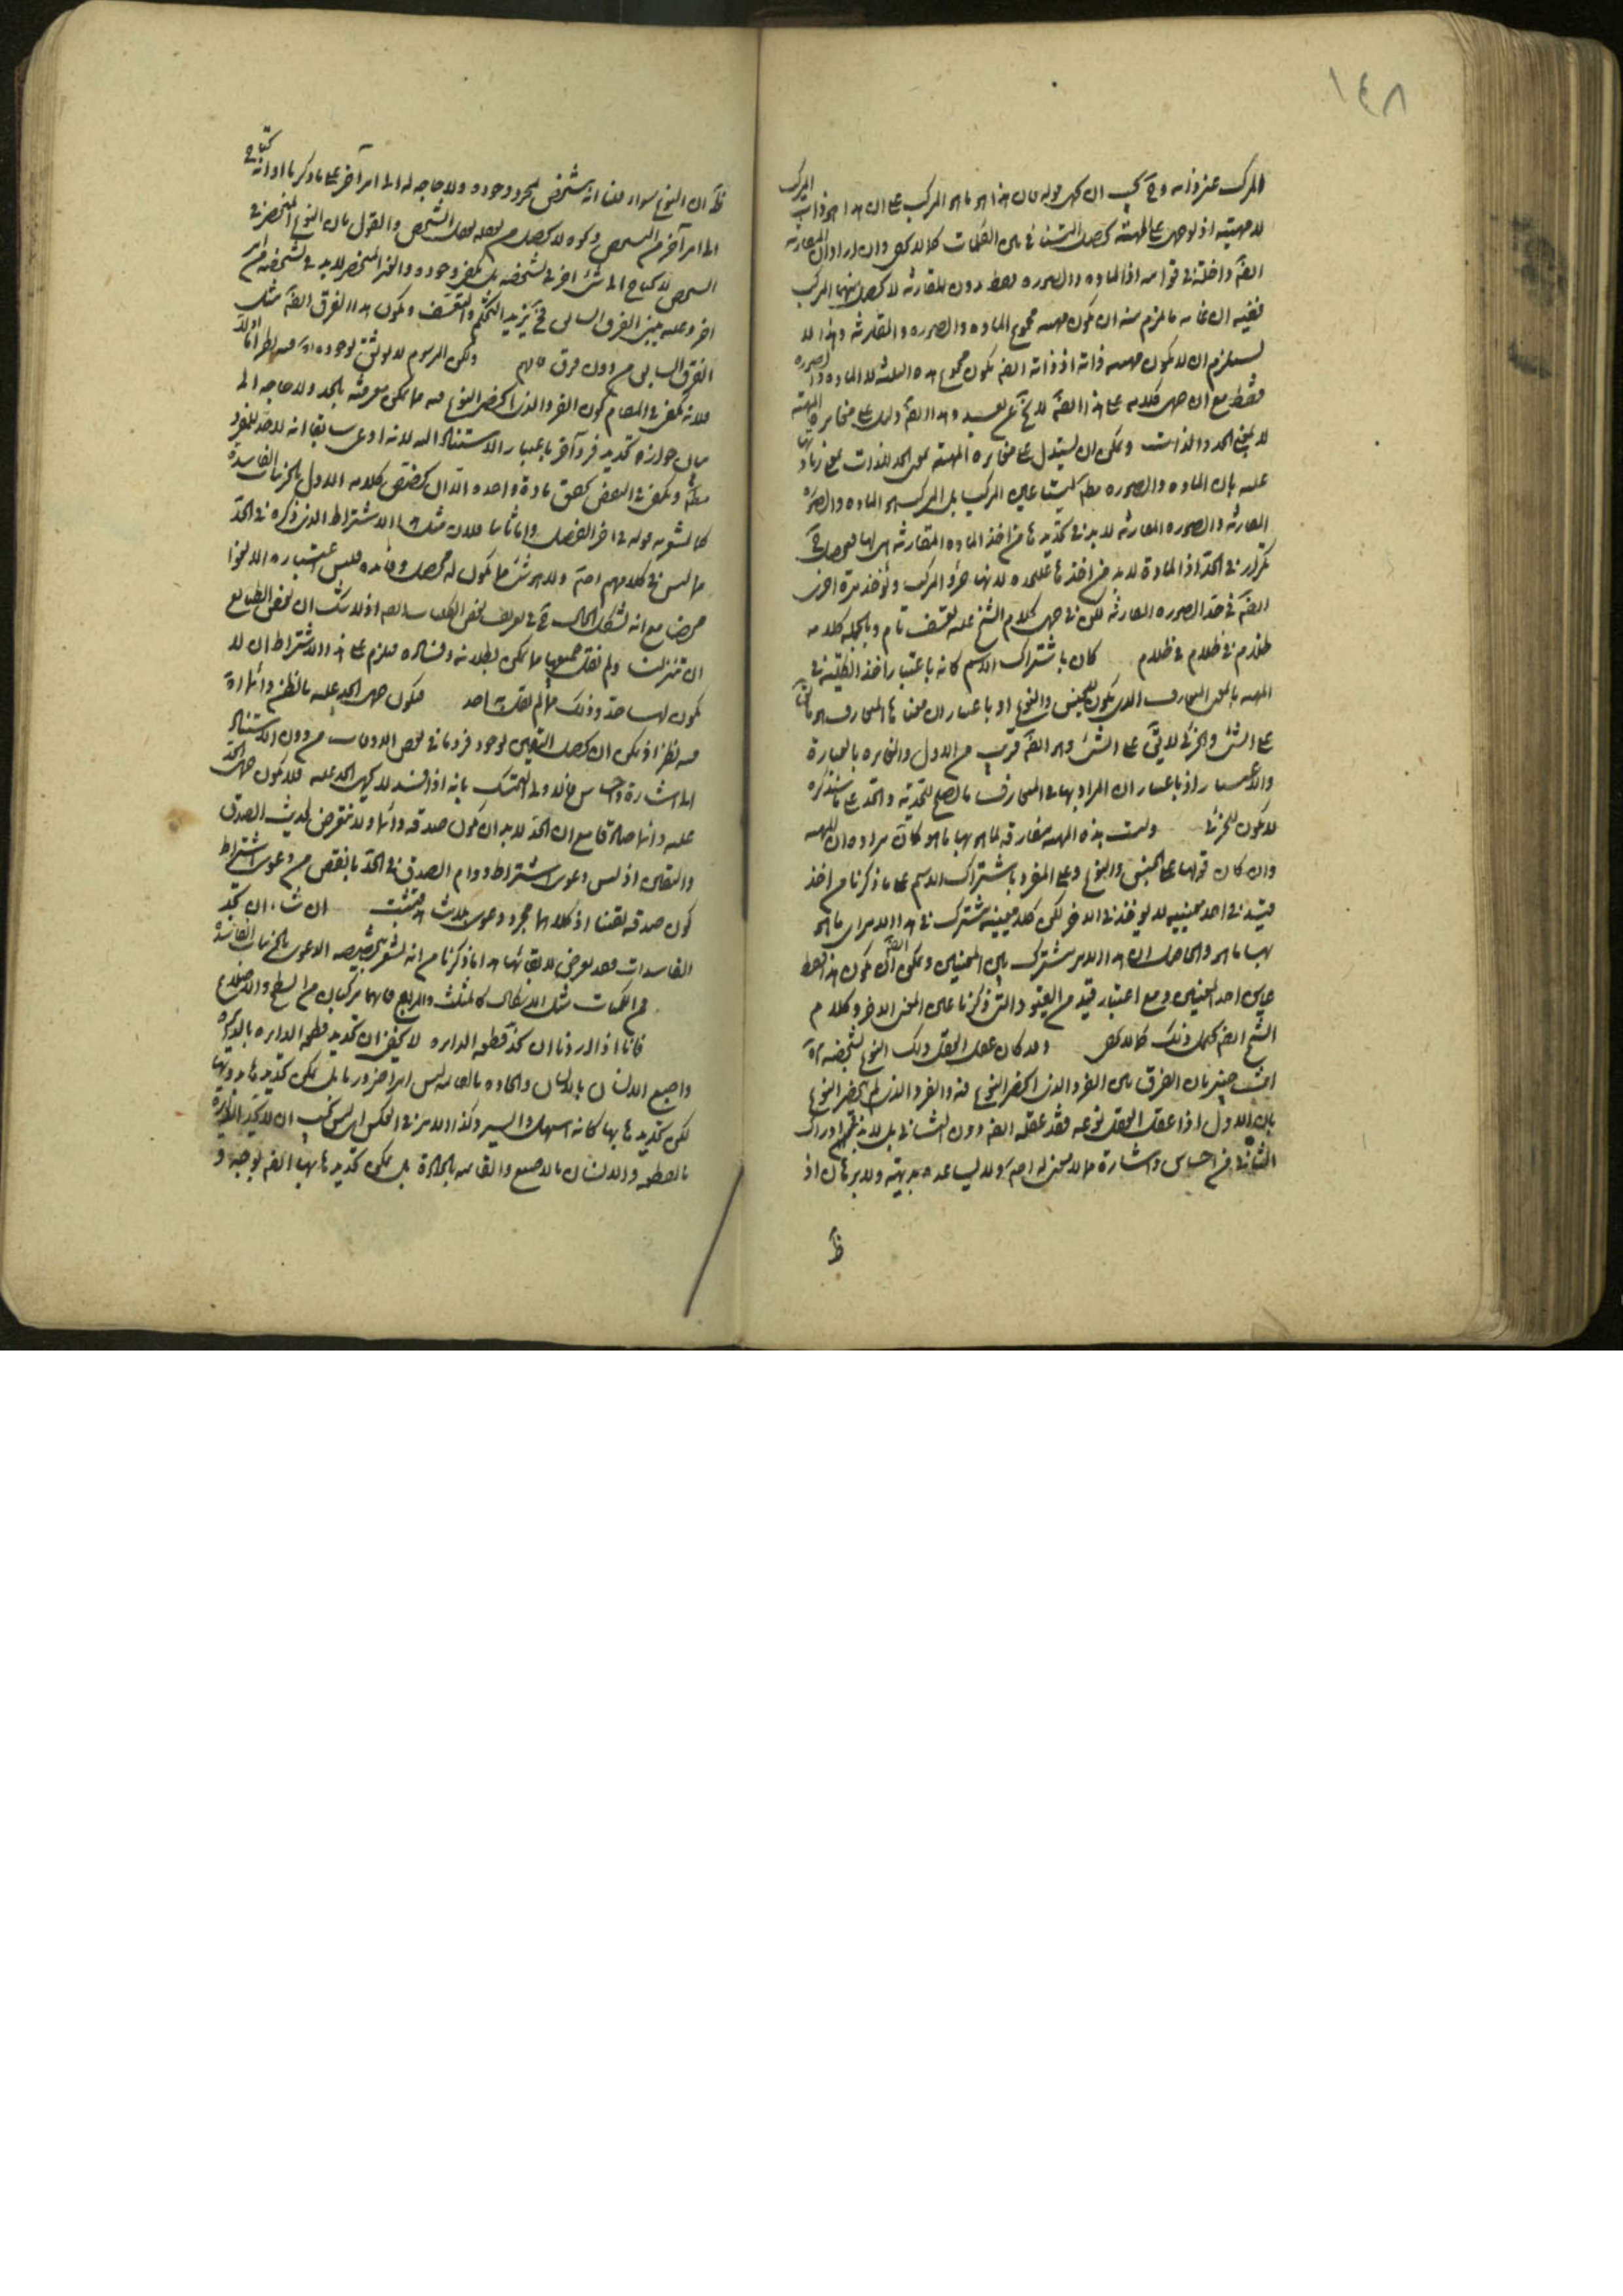 ١٤٨
المركب عين ذاته وح يجب ان يحمل قوله فان هذا هو ما هو المركب على ان هذا هو ذات المركب
لا مهيته اذ لو حمل على المهية يحصل التنافي بين الكلمات كما لا يخفى وان اراد ان المقارنة
ايضا داخلة في قوامه اذ المادة والصورة فقط بدون المقارنة لا يحصل منهما المركب
ففيه ان غاية ما يلزم منه ان يكون مهيته مجموع المادة والصورة والمقارنة وهذا لا
يستلزم ان لا يكون مهيته ذاته اذ ذاته ايضا يكون مجموع هذه الثلاثة لا المادة والصورة
فقط مع ان حمل كلامه على هذا ايضا لا يخ عن بعد وهذا ايضا دليل على مغايرة المهية
لا بمعنى الحد والذات ويمكن ان يستدل على مغايرة المهية بمعنى الحد للذات بمعنى
عليه بان المادة والصورة مطلقا ليستا عين المركب بل المركب هو المادة والصورة
المقارنة والصورة المقارنة لا بد في تحديدها من اخذ المادة المتقارنة هي لها فيحصل ح
تكرار في الحد اذ المادة لا بد من اخذها عليحدة لانها جزء المركب ويؤخذ مرة اخرى
ايضا في حد الصورة المقارنة لكن في حمل كلام الشيخ عليه تعسف تام وبالجملة كلامه
ظلام في ظلام في ظلام كان باشتراك الاسم كانه باعتبار اخذ الكلية في
المهية بالمعنى المتعارف الذي يكون للجنس والنوع او باعتبار ان معناها المتعارف هو
على الشئ والجزئي لا يق على الشئ وهو ايضا قريب من الاول والمغايرة بالعبارة
والاعتبار اذ باعتبار ان المراد بها في المتعارف ما يصلح للتحدية والحد على ما سنذكره
لا يكون للجزئي وليست هذه المهية مفارقة لما هو بها ما هو كان مراده ان المهية
وان كان قولها على الجنس والنوع وعلى المفرد باشتراك الاسم على ما ذكرنا من اخذ
قيد في احد معنييه لا يؤخذ في الاخر لكن كلا معنييه مشترك في هذا الامر اى ما هو
بها ما هو والحاصل ان هذا الامر مشترك بين المعنيين ويمكن ايضا ان يكون هذا فقط
هي احد المعنيين ومع اعتبار قيد من القيود التي ذكرنا هي المعنى الاخر وكلام
الشيخ ايضا يحتمل ذلك كما لا يخفى ولو كان عقل العقل ذلك النوع لتشخصه
انت خبير بان الفرق بين الفرد الذي انحصر النوع فيه والفرد الذي لم ينحصر النوع
بان الاول اذا عقل العقل نوعه فقد عقله ايضا دون الثاني بل لا بد في ادراك
الثاني من احساس واشارة مما لا معنى له اصلا ولا يساعده بديهية ولا برهان اذ
ظ
ظ ان النوع سواء قلنا انه يتشخص بمجرد وجوده ولا حاجة له الى امر آخر على ما ذكرنا او انه يحتاج
الى امر آخر من التشخص ونحوه لا يحصل من تعقله تعقل الشخص والقول بان النوع المنحصر في
الشخص لا يحتاج الى شئ اخر في تشخصه بل يكفي وجوده والغير المنحصر لا بد في تشخصه من امر
اخر وعليه يبنى الفرق السابق فح يزيد التحكم والتعسف ويكون هذا الفرق ايضا مثل
الفرق السابق من دون فرق فافهم ولكن المرسوم لا يوثق بوجوده اه فيه نظر اما اولا
فلانه يكفي في المقام كون الفرد الذي انحصر النوع فيه مما يمكن معرفته بالحد ولا حاجة الى
بيان جوازه تحديد فرد آخر باعتبار الاستناد اليه لانه ادعى سابقا انه لا حد للمفرد
مطلقا ويكفي في النقض تحقق مادة واحدة الا ان يختص كلامه الاول بالجزئيات الفاسدة
كما يشعر به قوله في اخر الفصل واما ثانيا فلان مثل هذا الاشتراط الذي ذكره في الحد
مما ليس في كلامهم اصلا ولا هو شئ مما يكون له محصل وفائدة فليس اعتباره الا لغوا
محضا مع انه يشكل الحال ح في تعريف بعض الكليات ايضا اذ لا شك ان بعض الطبايع
ان تنزلت ولم نقل جميعها مما يمكن بطلانه وفساده فيلزم على هذا الاشتراط ان لا
يكون لها حد وذلك مما لم يقل به احد فيكون حمل الحد عليه بالظن دائما اه
فيه نظر اذ يمكن ان يحصل اليقين بوجود فرد ما في بعض الاوقات من دون الاستناد
الى اشارة واحساس فالاولى التمسك بانه اذا فسد لا يحمل الحد عليه فلا يكون حمل الحد
عليه دائما صادقا مع ان الحد لا بد ان يكون صدقه دائما ولا نتعرض لحديث الصدق
واليقين اذ ليس دعوى اشتراط دوام الصدق في الحد بانقص من دعوى اشتراط
كون صدقه يقينا اذ كلاهما مجرد دعوى بلا ثبت ان شاء ان يحد
الفاسدات فقد تعرض لابقائها هذا ما ذكرنا من انه يشعر بتخصيصه الدعوى بالجزئيات الفاسدة
من الكميات مثل الاشكال كالمثلث والمربع فانهما مركبان من السطح والاضلاع
فانا اذا اردنا ان نحد قطعة الدايرة لا يخفى ان تحديد قطعة الدايرة بالدايرة
واصبع الانسان بالانسان والحادة بالقائمة ليس امرا ضروريا بل يمكن تحديدها بدونها
لكن تحديدها بها كانه اسهل وايسر وكذا الامر في العكس اى ليس يجب ان لا يحد الدايرة
بالقطعة والانسان بالاصبع والقائمة بالحادة بل يمكن تحديدها بها ايضا بوجه و